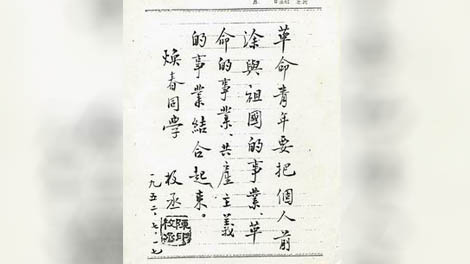 革命青年要把個人前
涂與祖國的事業、革
命的事業、共產主義
的事業結合起來。
煥春同学
枚丞
一九五二、七、一七